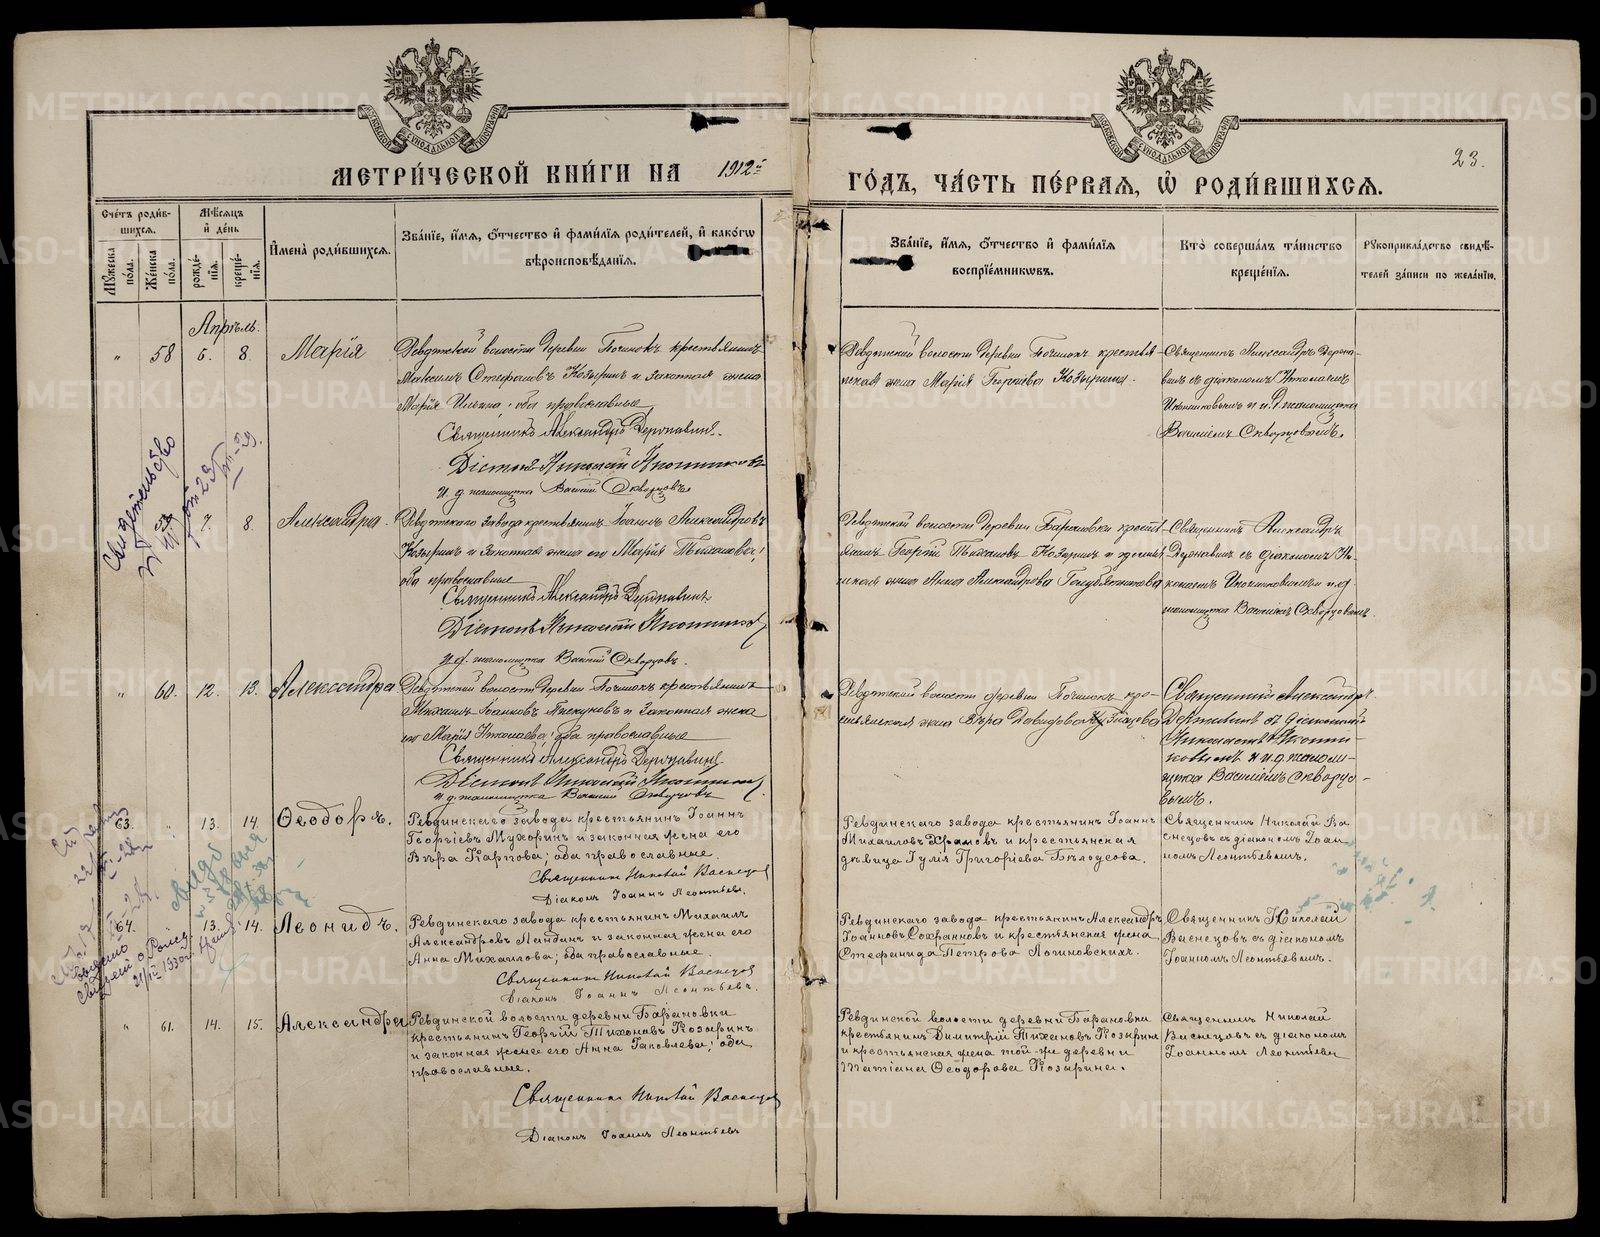 МЕТРИ́ЧЕСКОЙ КНИ́ГИ НА 1912й ГО́ДЪ, ЧА́СТЬ ПЕ́РВАЯ, Ѡ РОДИ́ВШИХСЯ.
23.
Сче́тъ роди́в-
шихся.
Му́жеска по́ла.
Же́нска по́ла.
Мѣ́сяцъ
и де́нь
рожде́-
нія.
креще́-
нія.
Имена̀ роди́вшихся.
Зва́ніе, и́мя, о́тчество и фами́лія роди́телей, и како́гѡ
вѣроисповѣ́данія.
Зва́ніе, и́мя, о́тчество и фами́лія
воспріе́мниковъ.
Кто̀ соверша́лъ та́инство
креще́нія.
Рукоприкла́дство свидѣ́-
телей за́писи по жела́нію.
Апрѣль.
" 58 5. 8. Марія
Ревдинской волости деревни Починокъ крестьянинъ
Максимъ Стефановъ Козыринъ и законная жена
Марія Ильина; оба православные
Священникъ Александръ Державинъ.
Діаконъ Николай
и. д. псаломщика Василій Скворцовъ
Ревдинской волости деревни Починокъ крестья-
нская жена Марія Георгіева Козырина.
Священникъ Александръ Держа-
винъ съ діакономъ Николаемъ
и и. д. псаломщика
Василіемъ Скворцовымъ.
Свидѣтельство
7. 8. Александра.
Ревдинскаго завода крестьянинъ Іоаннъ Александровъ
Козыринъ и законная жена его Марія Тихонова;
оба православные
Священникъ Александръ Державинъ
Діаконъ Николай
и. д. псаломщика Василій Скворцовъ.
Ревдинской волости деревни Барановки кресть
янинъ Георгій Тихановъ Козыринъ и
жена Анна Александрова
Священникъ Александръ
Державинъ съ діакономъ Ни-
колаемъ и. д.
псаломщика Василіемъ Скворцовымъ.
" 60. 12. 13. Александра
Ревдинской волости деревни Починокъ крестьянинъ
Михаилъ Іоанновъ Пискуновъ и законная жена
его Марія Николаева; оба православные
Священникъ Александръ Державинъ.
Діаконъ Николай
и. д. псаломщика Василій Скворцовъ
Ревдинской волости деревни Починокъ кре-
стьянская жена Вѣра Давидова
Священникъ Александръ
Державинъ съ діакономъ
Николаемъ
и и. д. псалом-
щика Василіемъ Скворцо-
вымъ.
63. " 13. 14. Ѳеодоръ.
Ревдинскаго завода крестьянинъ Іоаннъ
Георгіевъ Мухоринъ и законная жена его
Вѣра Карпова; оба православные.
Священникъ Николай Васнецовъ
Діаконъ Іоаннъ Леонтьевъ.
Ревдинскаго завода крестьянинъ Іоаннъ
Михаиловъ Храмовъ и крестьянская
дѣвица Іулія Григоріева Бѣлоусова.
Священникъ Николай Ва
снецовъ съ діакономъ Іоан-
номъ Леонтьевымъ.
64. 13. 14. Леонидъ.
Ревдинскаго завода крестьянинъ Михаилъ
Александровъ и законная жена его
Анна Михаилова; оба православные.
Священникъ Николай Васнецовъ
Діаконъ Іоаннъ Леонтьевъ.
Ревдинскаго завода крестьянинъ Александръ
Іоанновъ Сохранновъ и крестьянская жена
Стефанида Петрова Логиновскихъ.
Священникъ Николай
Васнецовъ съ діакономъ
Іоанномъ Леонтьевымъ.
" 61. 14. 15. Александра
Ревдинской волости деревни Барановки
крестьянинъ Георгій Тихоновъ Козыринъ
и законная жена его Анна Іаковлева; оба
православные.
Священникъ Николай Васнецовъ
Діаконъ Іоаннъ Леонтьевъ
Ревдинской волости деревни Барановки
крестьянинъ Димитрій Тихановъ Козыринъ
и крестьянская жена той-же деревни
Татіана Ѳеодорова Козырина.
Священникъ Николай
Васнецовъ съ діакономъ
Іоанномъ Леонтьевы
METRIKI.GASO-URAL.RU